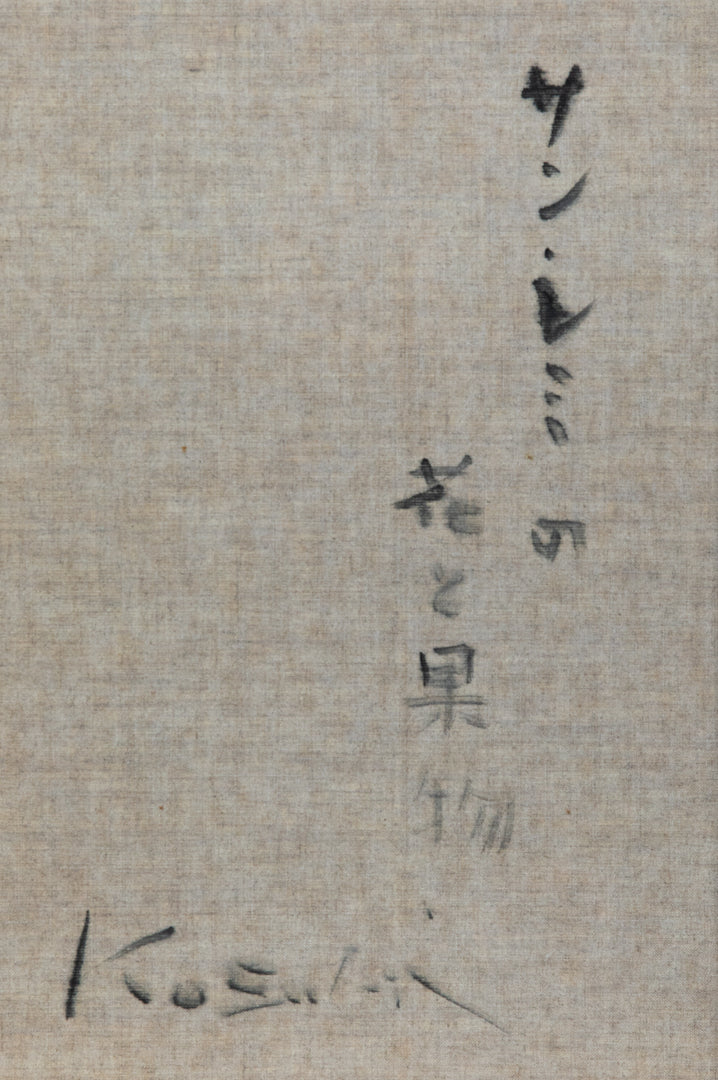 サン・レミ
花と果物